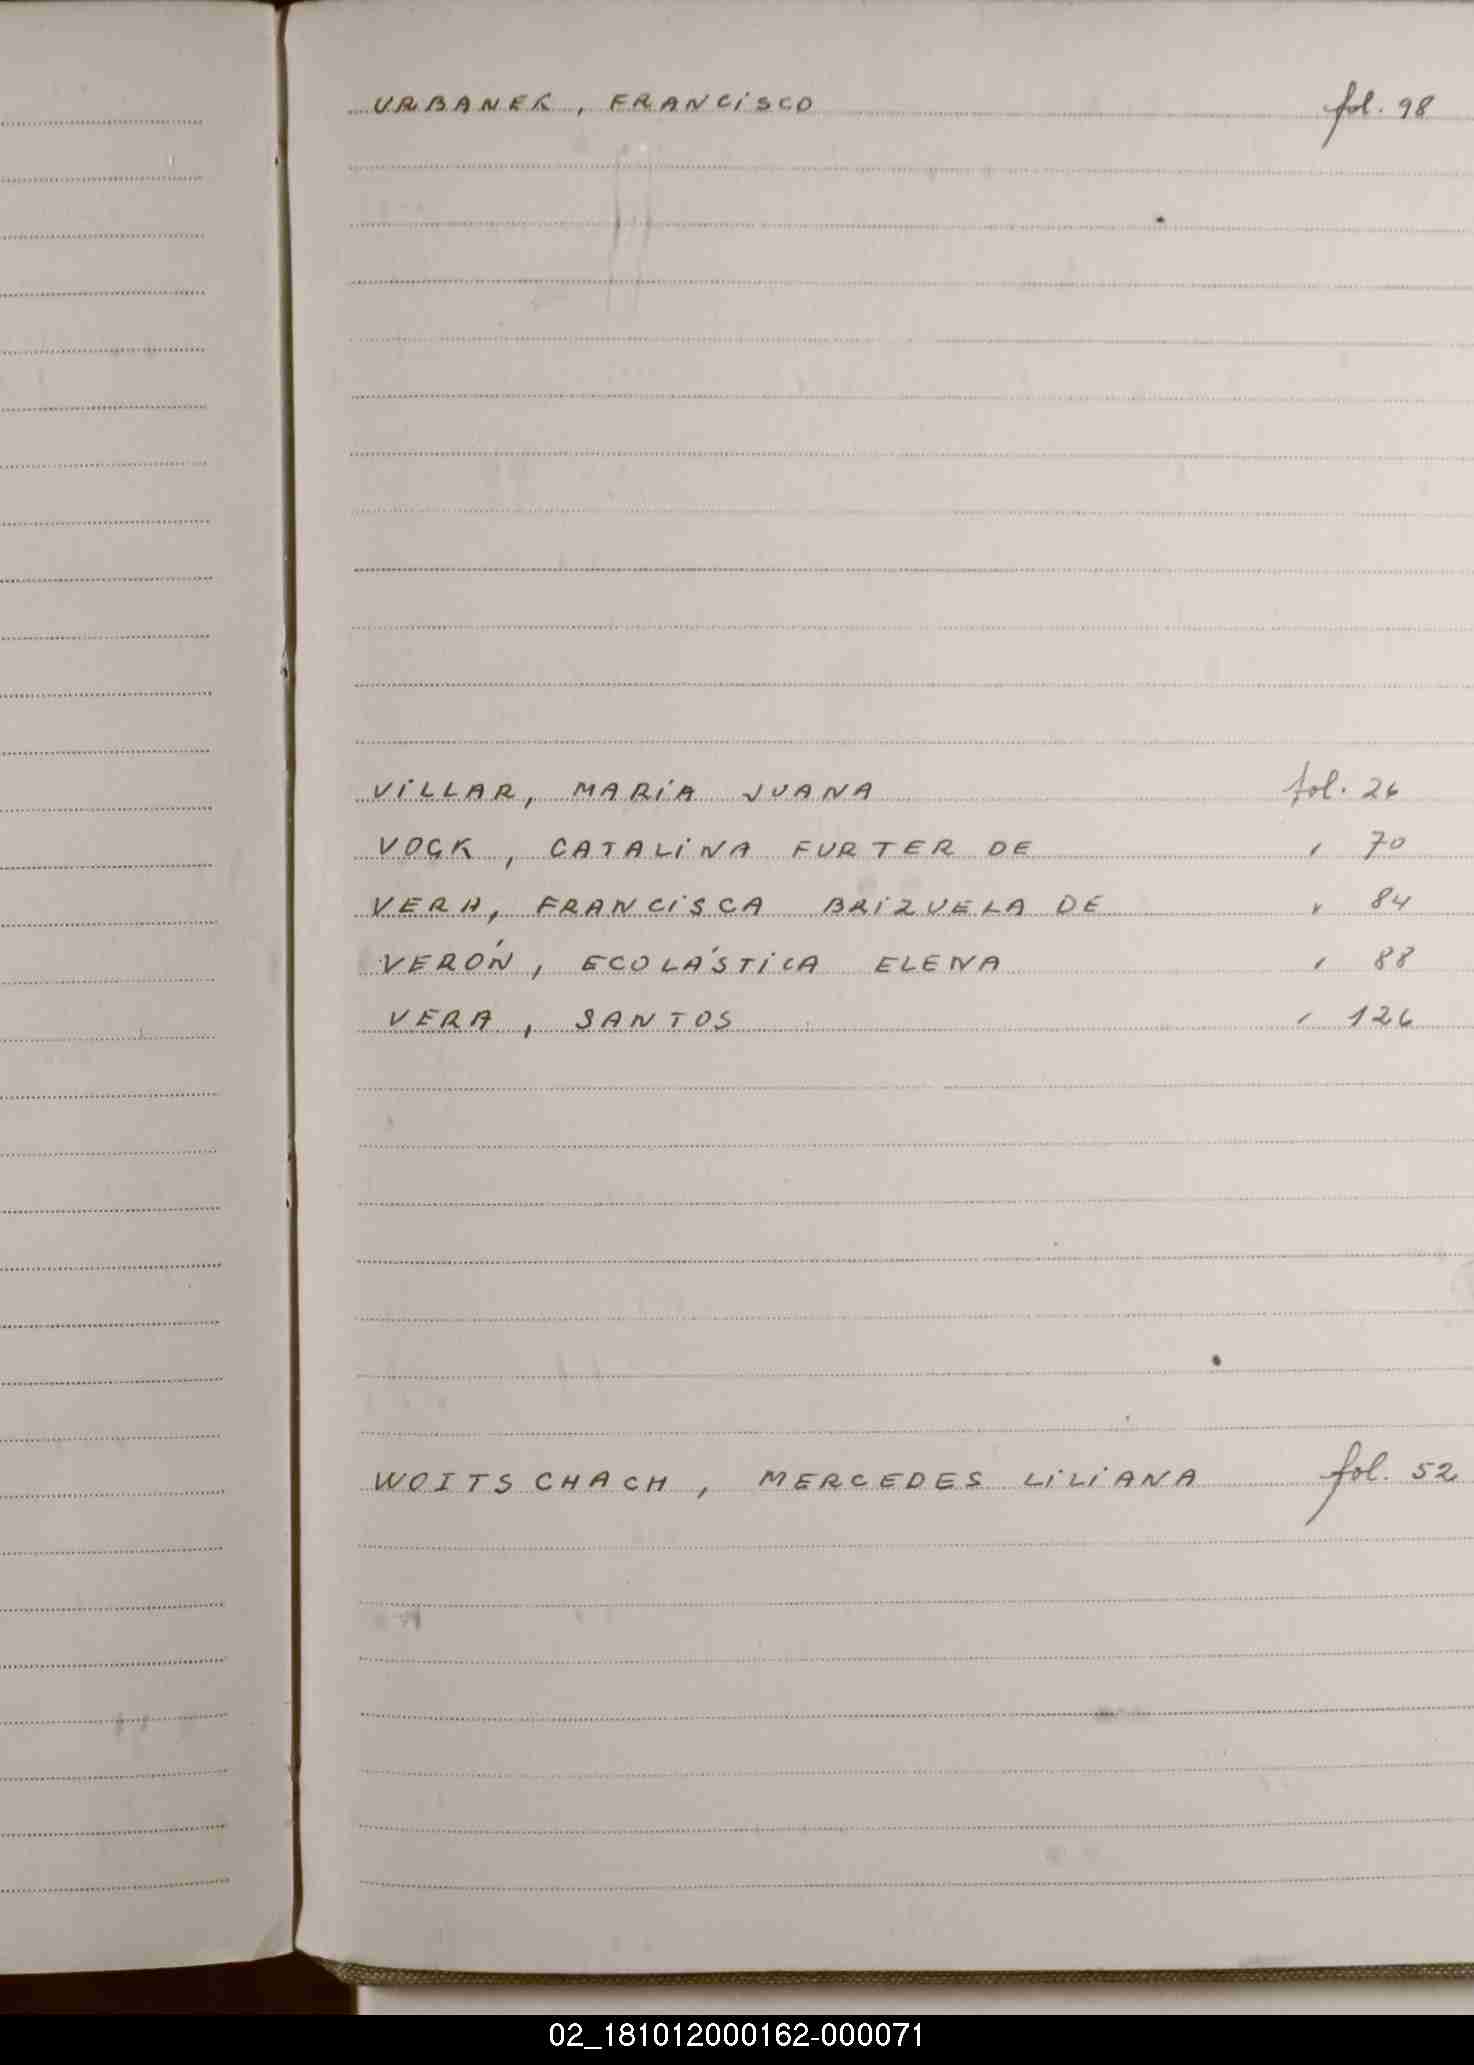 URBANEK, FRANCISCO fol. 98
VILLAR, MARÍA JUANA fol. 26
VOCK, CATALINA FURTER DE " 70
VERA, FRANCISCA BRIZUELA DE " 84
VERÓN, ECOLÁSTICA ELENA " 88
VERA, SANTOS " 126
WOITSCHACH, MERCEDES LILIANA fol. 52
02_181012000162-000071